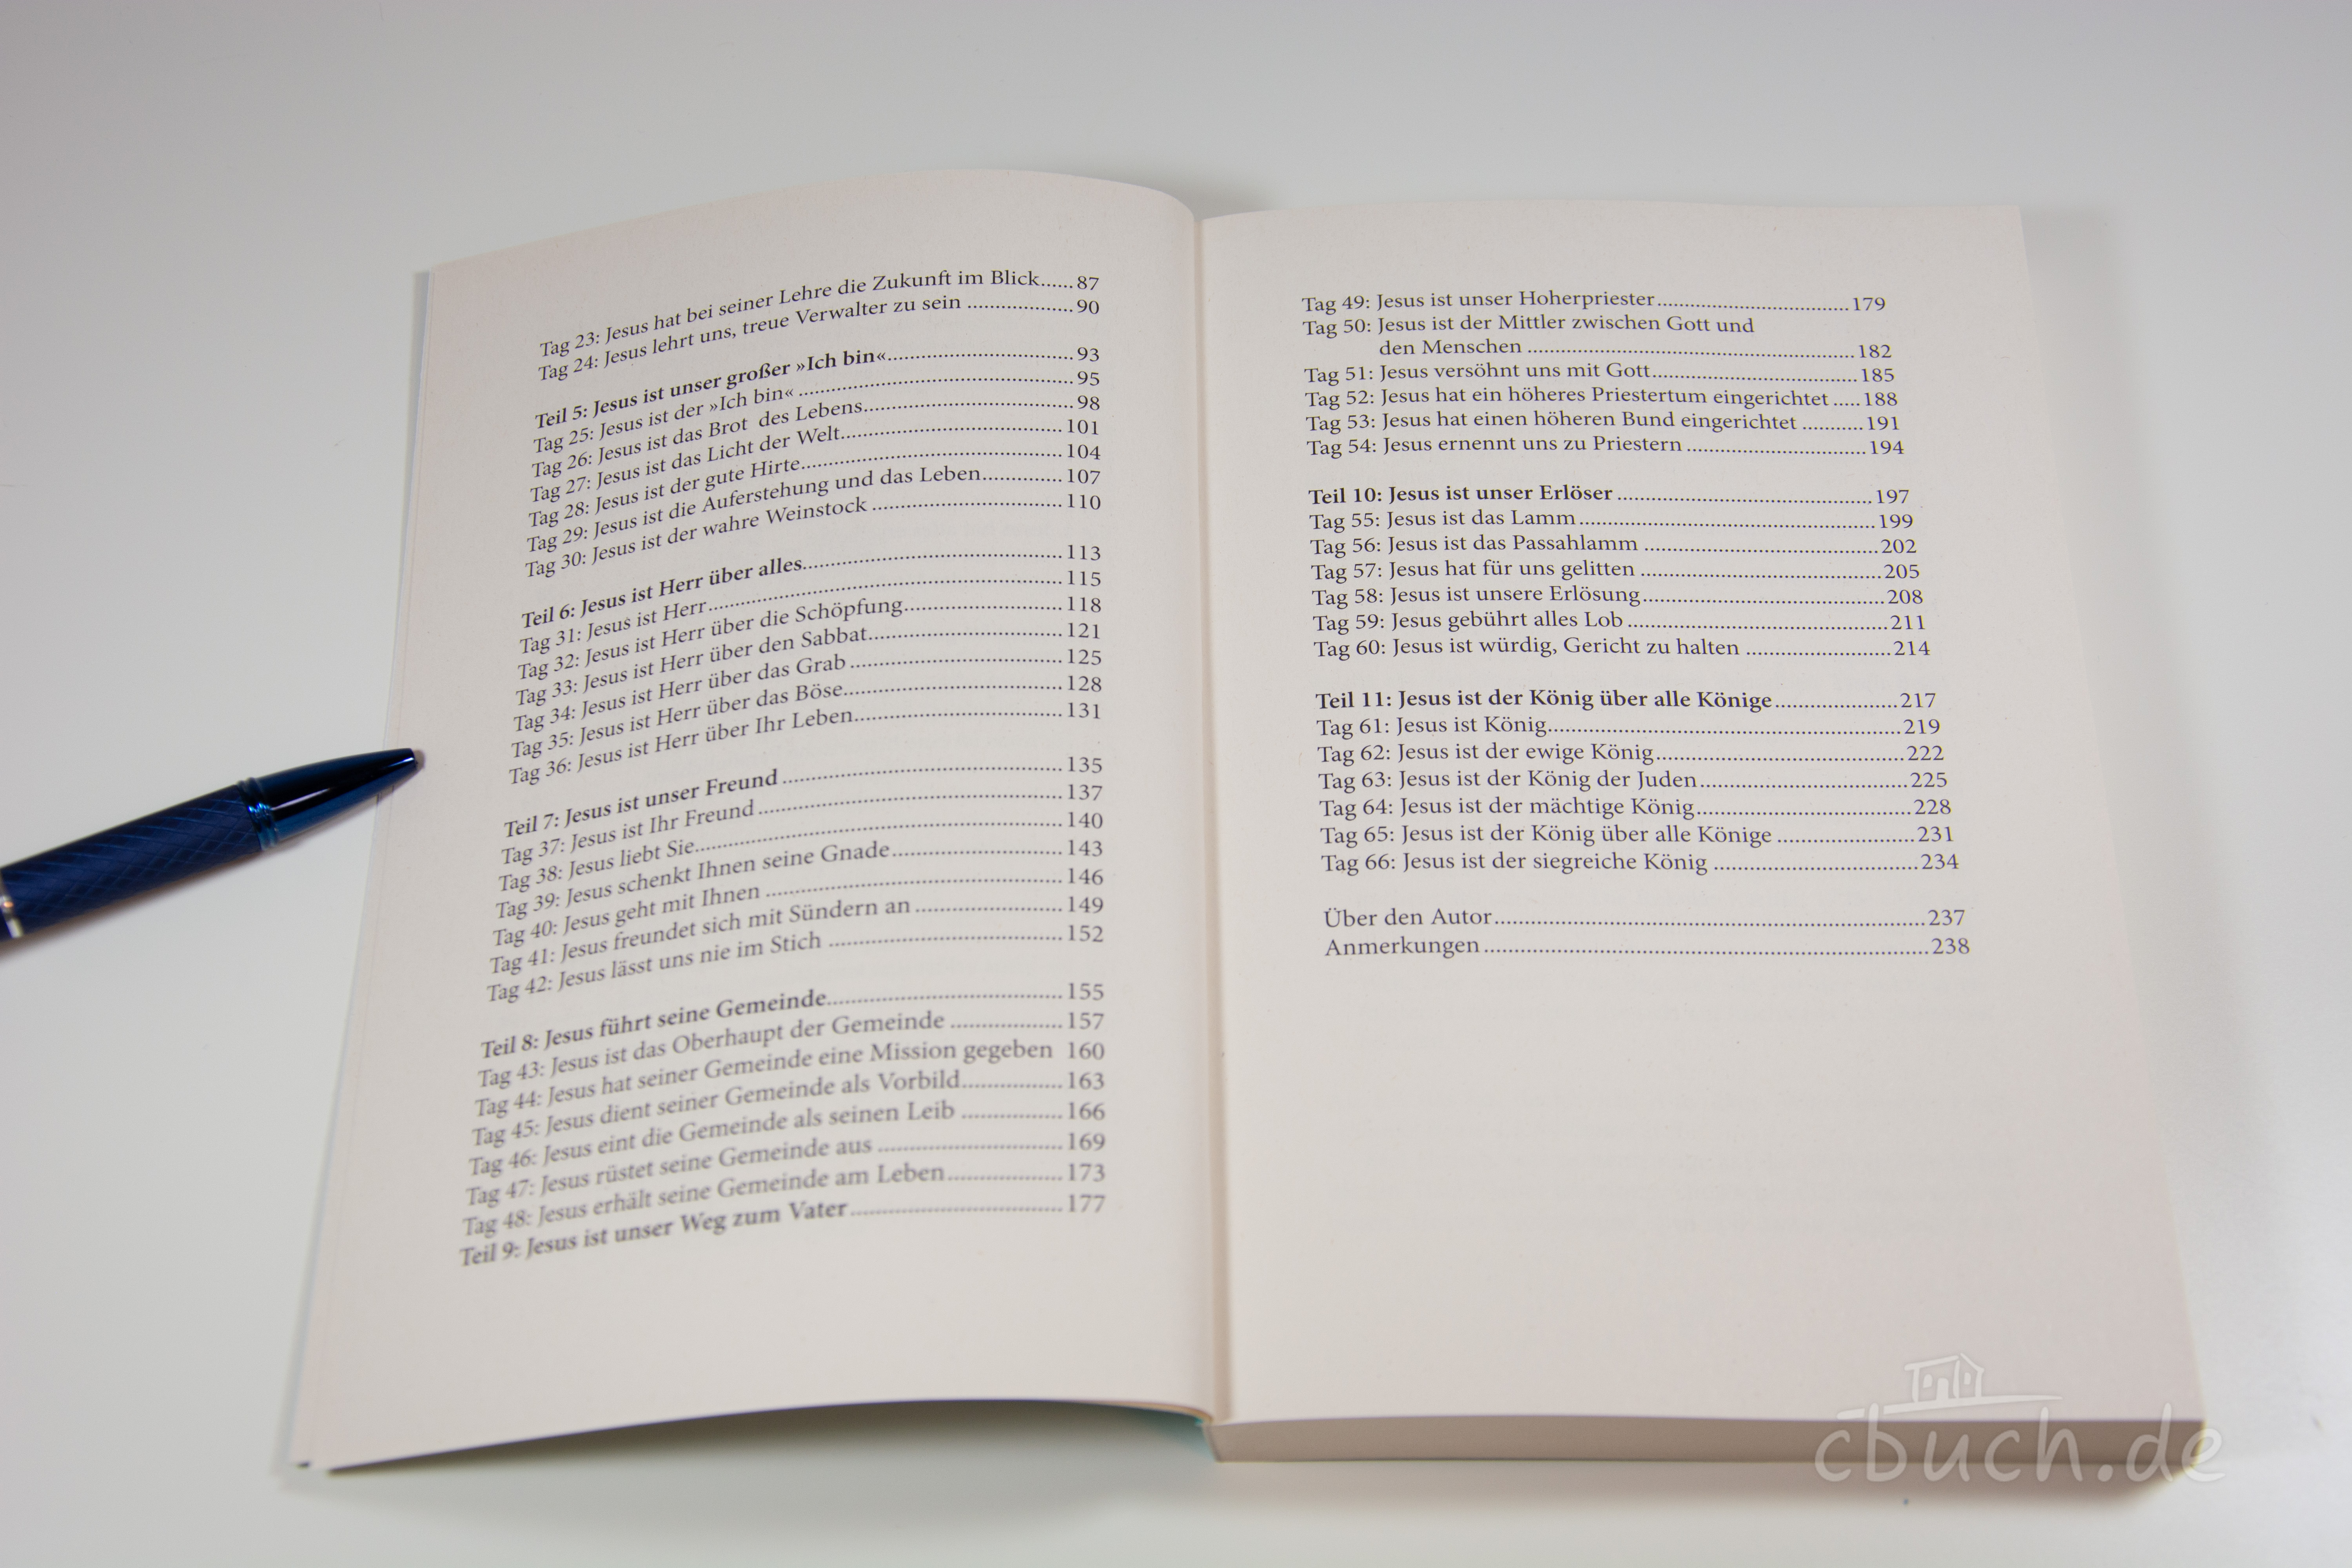 Tag 23: Jesus hat bei seiner Lehre die Zukunft im Blick......87
Tag 24: Jesus lehrt uns, treue Verwalter zu sein ....................90
Teil 5: Jesus ist unser großer »Ich bin«...................................93
Tag 25: Jesus ist der »Ich bin« ....................................................95
Tag 26: Jesus ist das Brot  des Lebens........................................98
Tag 27: Jesus ist das Licht der Welt..........................................101
Tag 28: Jesus ist der gute Hirte.................................................104
Tag 29: Jesus ist die Auferstehung und das Leben...............107
Tag 30: Jesus ist der wahre Weinstock ....................................110
Teil 6: Jesus ist Herr über alles.................................................113
Tag 31: Jesus ist Herr...................................................................115
Tag 32: Jesus ist Herr über die Schöpfung..............................118
Tag 33: Jesus ist Herr über den Sabbat.....................................121
Tag 34: Jesus ist Herr über das Grab ........................................125
Tag 35: Jesus ist Herr über das Böse.........................................128
Tag 36: Jesus ist Herr über Ihr Leben.......................................131
Teil 7: Jesus ist unser Freund .....................................................135
Tag 37: Jesus ist Ihr Freund .........................................................137
Tag 38: Jesus liebt Sie.....................................................................140
Tag 39: Jesus schenkt Ihnen seine Gnade................................143
Tag 40: Jesus geht mit Ihnen ........................................................146
Tag 41: Jesus freundet sich mit Sündern an ...........................149
Tag 42: Jesus lässt uns nie im Stich ............................................152
Teil 8: Jesus führt seine Gemeinde............................................155
Tag 43: Jesus ist das Oberhaupt der Gemeinde .....................157
Tag 44: Jesus hat seiner Gemeinde eine Mission gegeben 160
Tag 45: Jesus dient seiner Gemeinde als Vorbild..................163
Tag 46: Jesus eint die Gemeinde als seinen Leib ..................166
Tag 47: Jesus rüstet seine Gemeinde aus .................................169
Tag 48: Jesus erhält seine Gemeinde am Leben.....................173
Teil 9: Jesus ist unser Weg zum Vater.......................................177
Tag 49: Jesus ist unser Hoherpriester......................................179
Tag 50: Jesus ist der Mittler zwischen Gott und
den Menschen ..................................................................182
Tag 51: Jesus versöhnt uns mit Gott.........................................185
Tag 52: Jesus hat ein höheres Priestertum eingerichtet .....188
Tag 53: Jesus hat einen höheren Bund eingerichtet ...........191
Tag 54: Jesus ernennt uns zu Priestern ...................................194
Teil 10: Jesus ist unser Erlöser ..................................................197
Tag 55: Jesus ist das Lamm..........................................................199
Tag 56: Jesus ist das Passahlamm .............................................202
Tag 57: Jesus hat für uns gelitten ..............................................205
Tag 58: Jesus ist unsere Erlösung..............................................208
Tag 59: Jesus gebührt alles Lob ..................................................211
Tag 60: Jesus ist würdig, Gericht zu halten ............................214
Teil 11: Jesus ist der König über alle Könige........................217
Tag 61: Jesus ist König...................................................................219
Tag 62: Jesus ist der ewige König...............................................222
Tag 63: Jesus ist der König der Juden.......................................225
Tag 64: Jesus ist der mächtige König........................................228
Tag 65: Jesus ist der König über alle Könige .........................231
Tag 66: Jesus ist der siegreiche König ......................................234
Über den Autor................................................................................237
Anmerkungen..................................................................................238
cbuch.de